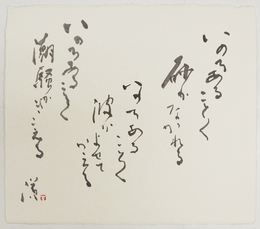 いのちある
ごとく
砂がながれる
いのちある
ごとく
波が
よせて
かえる
いのちある
ごとく
潮騒が
きこえる